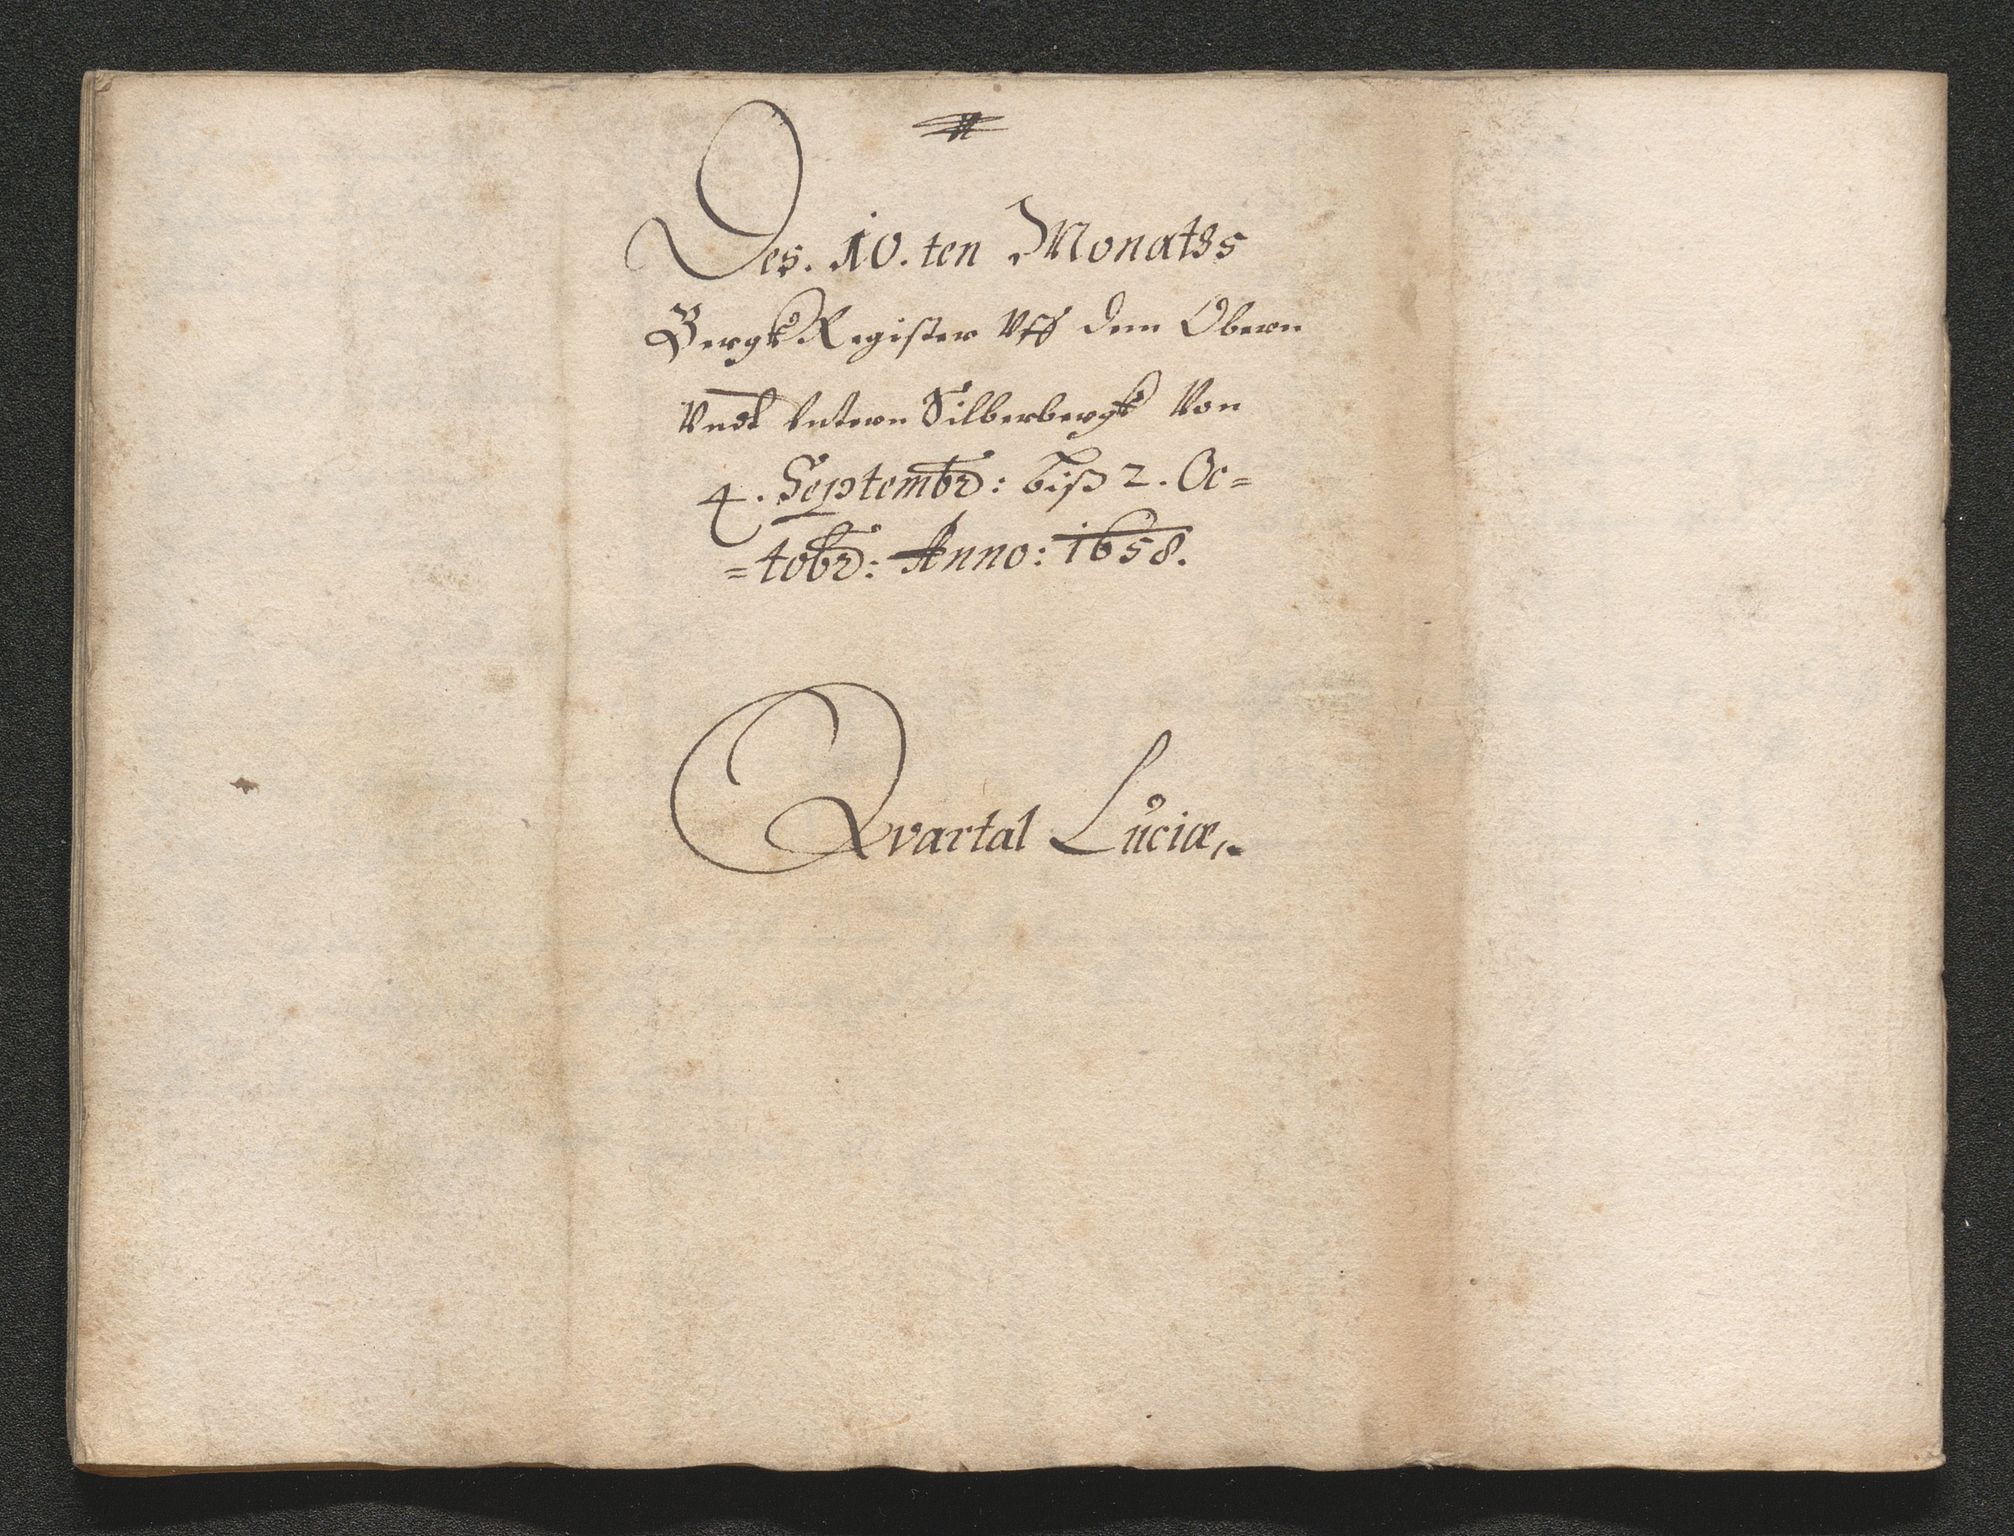 Des. 10. ten Monatßs
BergkRegister Vff dem Obern
Vndt Vntern Silberbergk Von
4. Septembr: biß 2. Oc=
=tobr: Anno: 1658.
Qvartal Luciæ,